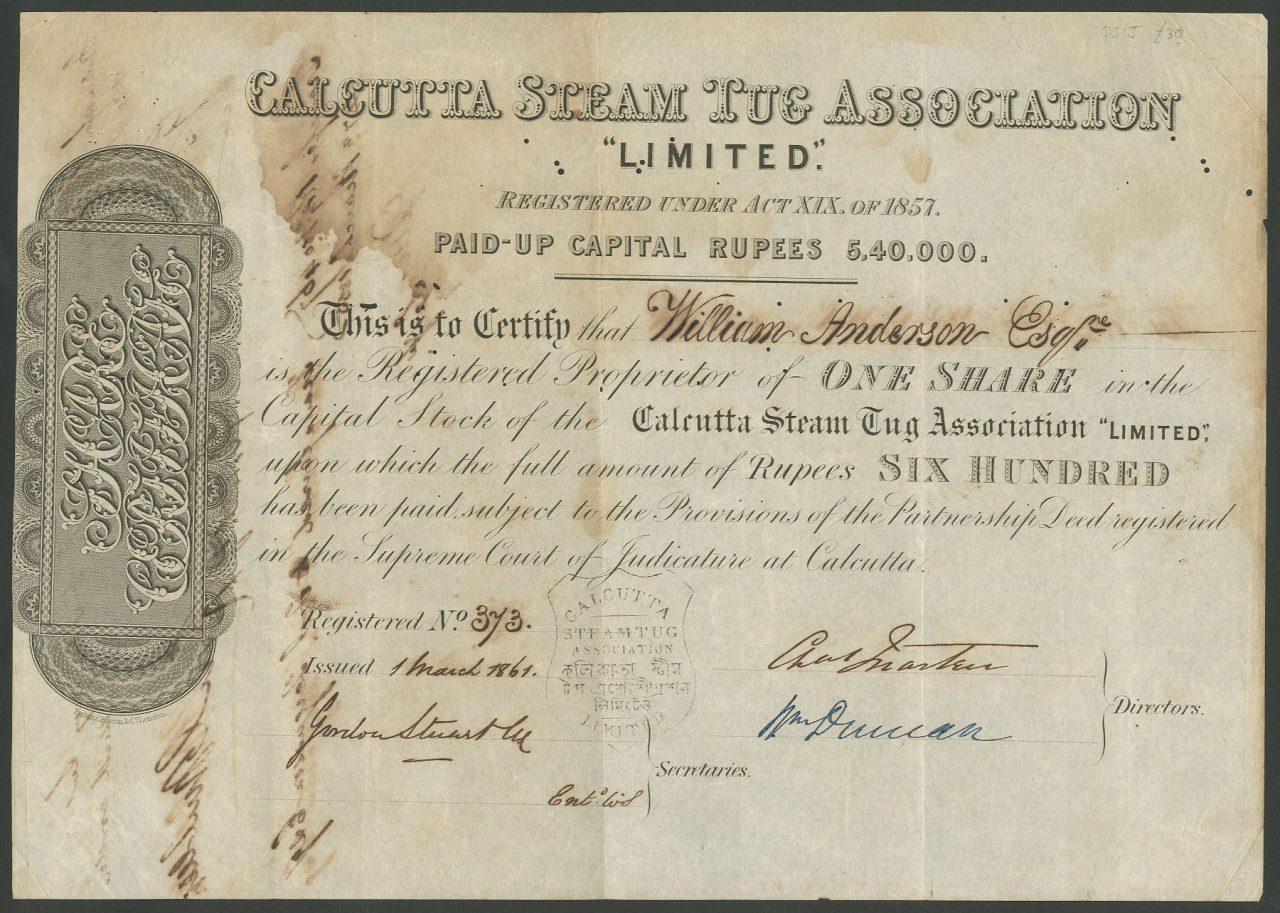 £30
CALCUTTA STEAM TUG ASSOCIATION
"LIMITED".
REGISTERED UNDER ACT XIX. OF 1857.
PAID-UP CAPITAL RUPEES 5,40,000.
This is to Certify that William Anderson Esqre
is the Registered Proprietor of ONE SHARE in the
Capital Stock of the Calcutta Steam Tug Association "LIMITED",
upon which the full amount of Rupees SIX HUNDRED
has been paid, subject to the Provisions of the Partnership Deed registered
in the Supreme Court of Judicature at Calcutta.
SHARE
CERTIFICATE
Registered No. 373.
Issued 1 March 1861.
CALCUTTA
STEAM TUG
ASSOCIATION
কলিকাতা ষ্টীম
লিমিটেড
LIMITED
Gordon Stuart &c
Secretaries.
Wm Duncan
Directors.